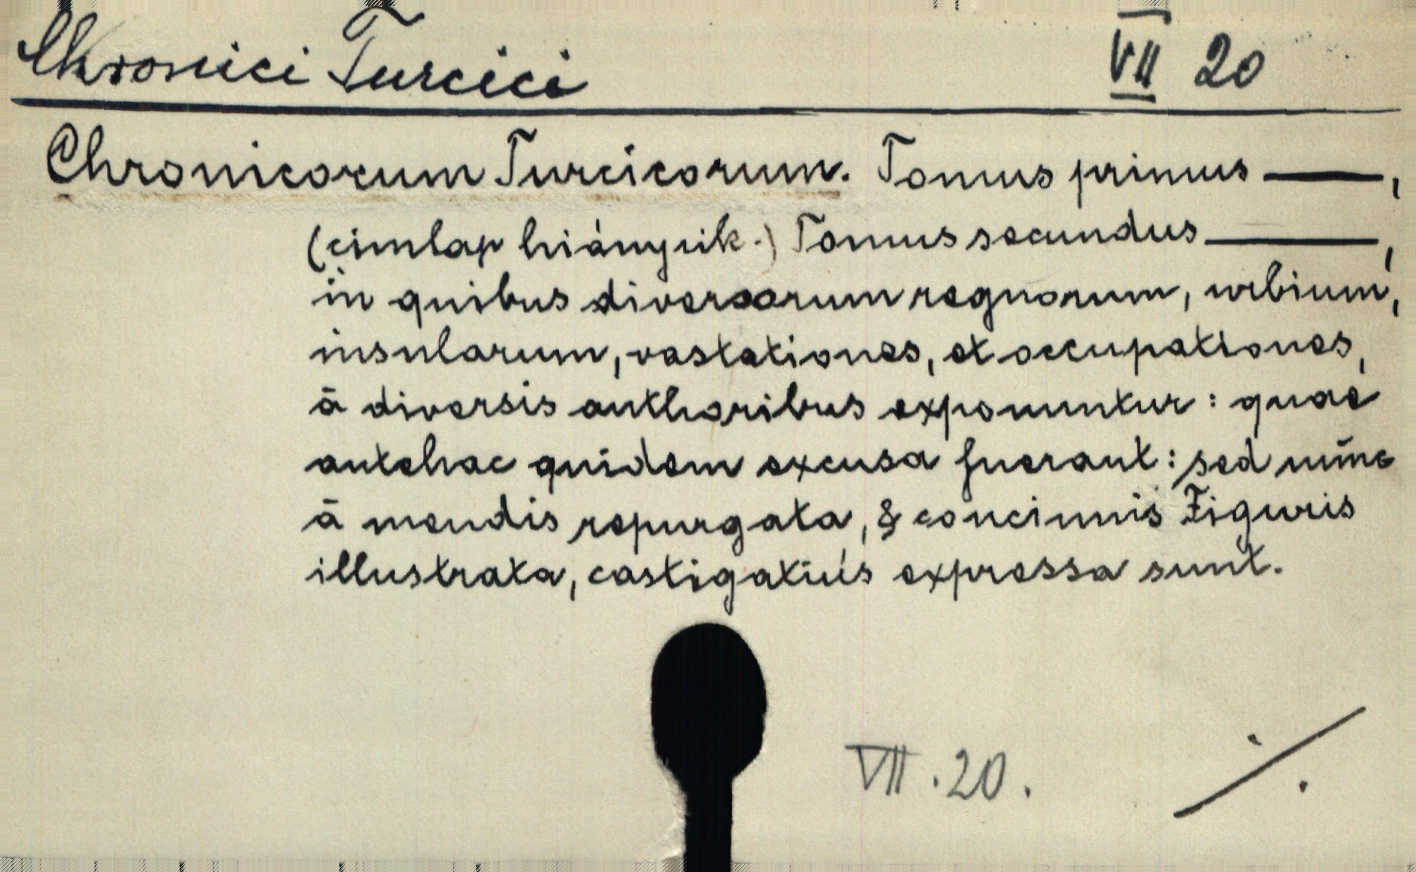 Chronici Turcici VII 20
Chronicorum Turcicorum. Tomus primus ——,
(cimlap hiányzik.) Tomus secundus ——,
in quibus diversorum regnorum, urbium,
insularum, vastationes, et occupationes,
ā diversis authoribus exponuntur: quae
antehac quidem excusa fuerant: sed nūnc
ā mendis repurgata, & concinnis Figuris
illustrata, castigatiús expressa sunt.
VII. 20. ./.